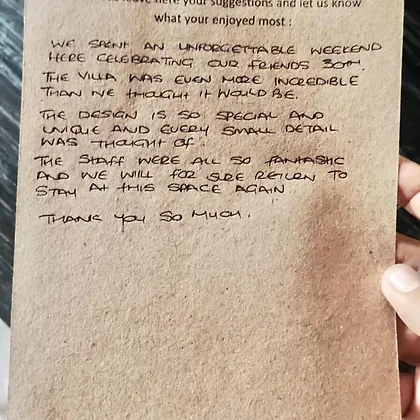 leave here your suggestions and let us know
what your enjoyed most :
WE SPENT AN UNFORGETTABLE WEEKEND
HERE CELEBRATING OUR FRIENDS 30TH.
THE VILLA WAS EVEN MORE INCREDIBLE
THAN WE THOUGHT IT WOULD BE.
THE DESIGN IS SO SPECIAL AND
UNIQUE AND EVERY SMALL DETAIL
WAS THOUGHT OF.
THE STAFF WERE ALL SO FANTASTIC
AND WE WILL FOR SURE RETURN TO
STAY AT THIS SPACE AGAIN
THANK YOU SO MUCH.